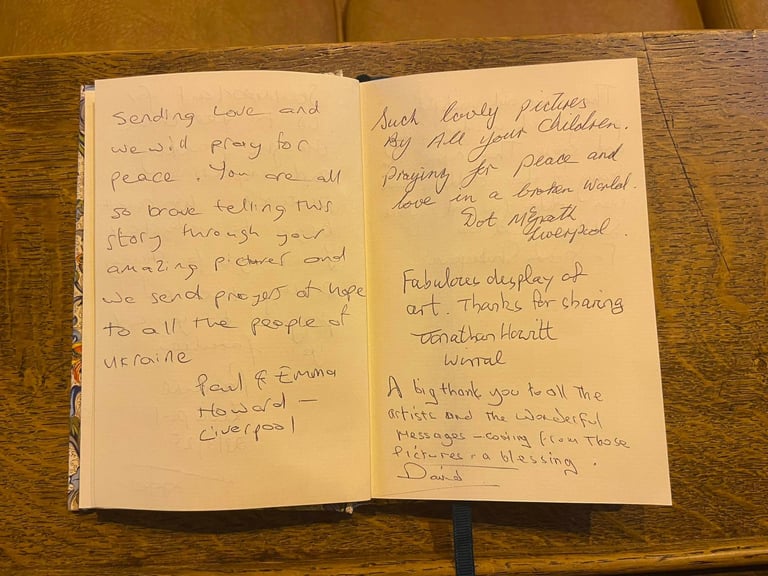 Sending Love and
we will pray for
peace. You are all
so brave telling this
story through your
amazing pictures and
we send prayers of hope
to all the people of
ukraine
Paul & Emma
Howard –
Liverpool
Such lovly pictures
By All your Children.
praying for peace and
love in a broken world.
Dot McGrath
Liverpool.
Fabulous display of
art. Thanks for sharing
Jonathan Howitt
Wirral
A big thank you to all the
artists and the wonderful
messages – coming from those
pictures – a blessing.
David